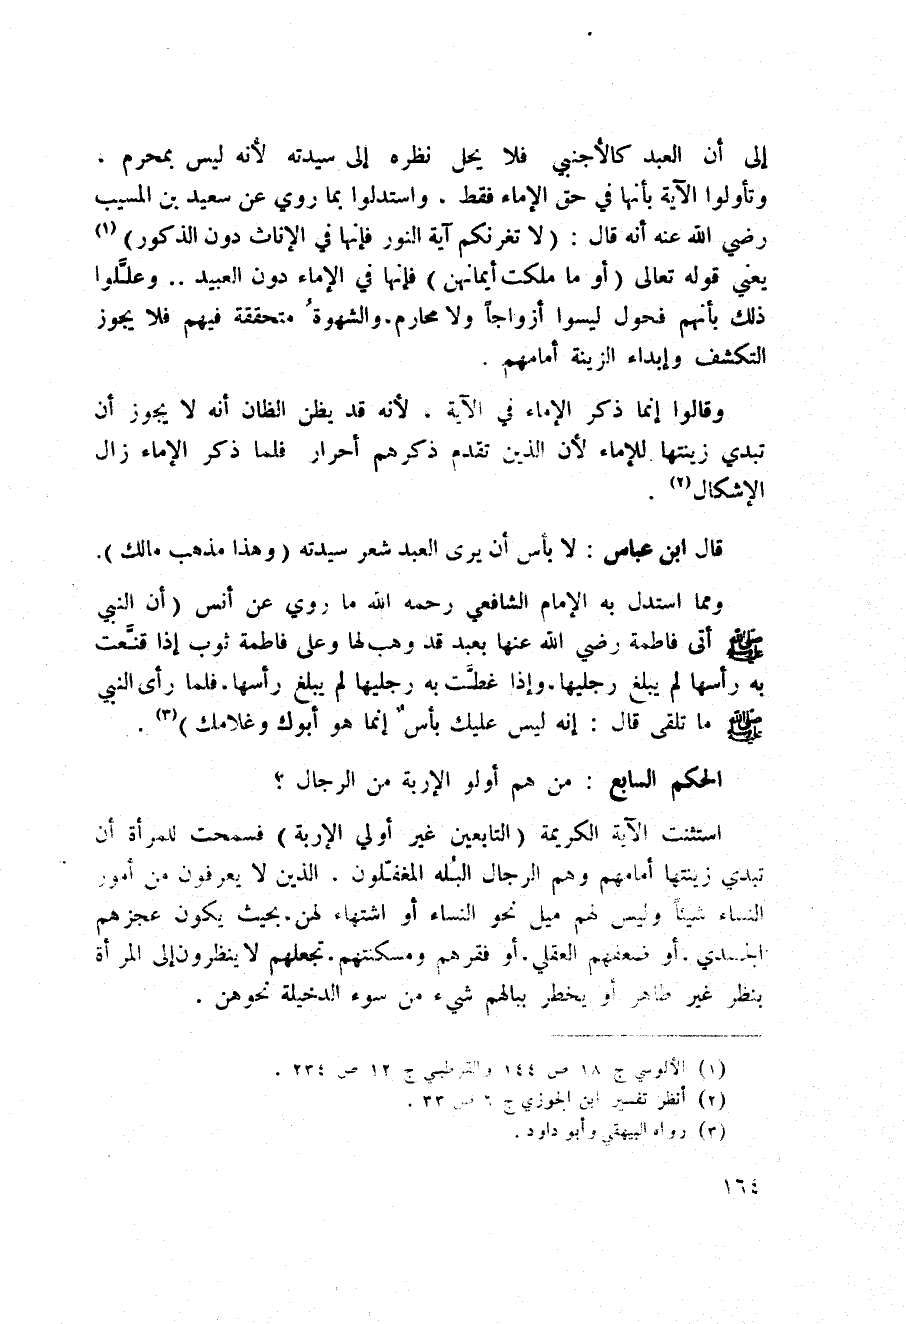 إلى أن العبد كالأجنبي فلا يحل نظره إلى سيدته لأنه ليس بمحرم .
وتأولوا الآية بأنها في حق الإماء فقط . واستدلوا بما روي عن سعيد بن المسيب
رضي الله عنه أنه قال : ( لا تغرنكم آية النور فإنها في الإناث دون الذكور ) (١)
يعني قوله تعالى ( أو ما ملكت أيمانهن ) فإنها في الإماء دون العبيد .. وعلَّلوا
ذلك بأنهم فحول ليسوا أزواجاً ولا محارم . والشهوةُ متحققة فيهم فلا يجوز
التكشف وإبداء الزينة أمامهم .
وقالوا إنما ذكر الإماء في الآية . لأنه قد يظن الظان أنه لا يجوز أن
تبدي زينتها للإماء لأن الذين تقدم ذكرهم أحرار فلما ذكر الإماء زال
الإشكال (٢) .
قال ابن عباس : لا بأس أن يرى العبد شعر سيدته ( وهذا مذهب مالك ).
ومما استدل به الإمام الشافعي رحمه الله ما روي عن أنس ( أن النبي
ﷺ أتى فاطمة رضي الله عنها بعبد قد وهب لها وعلى فاطمة ثوب إذا قنَّعت
به رأسها لم يبلغ رجليها . وإذا غطَّت به رجليها لم يبلغ رأسها . فلما رأى النبي
ﷺ ما تلقى قال : إنه ليس عليك بأسٌ إنما هو أبوك وغلامك ) (٣) .
الحكم السابع : من هم أولو الإربة من الرجال ؟
استثنت الآية الكريمة ( التابعين غير أولي الإربة ) فسمحت للمرأة أن
تبدي زينتها أمامهم وهم الرجال البُله المغفّلون . الذين لا يعرفون من أمور
النساء شيئاً وليس لهم ميل نحو النساء أو اشتهاء لهن . بحيث يكون عجزهم
الجسدي . أو ضعفهم العقلي . أو فقرهم ومسكنتهم . تجعلهم لا ينظرون إلى المرأة
بنظر غير طاهر أو يخطر ببالهم شيء من سوء الدخيلة نحوهن .
(١) الألوسي ج ١٨ ص ١٤٤ والقرطبي ج ١٢ ص ٢٣٤ .
(٢) أنظر تفسير ابن الجوزي ج ٦ ص ٣٣ .
(٣) رواه البيهقي وأبو داود .
١٦٤